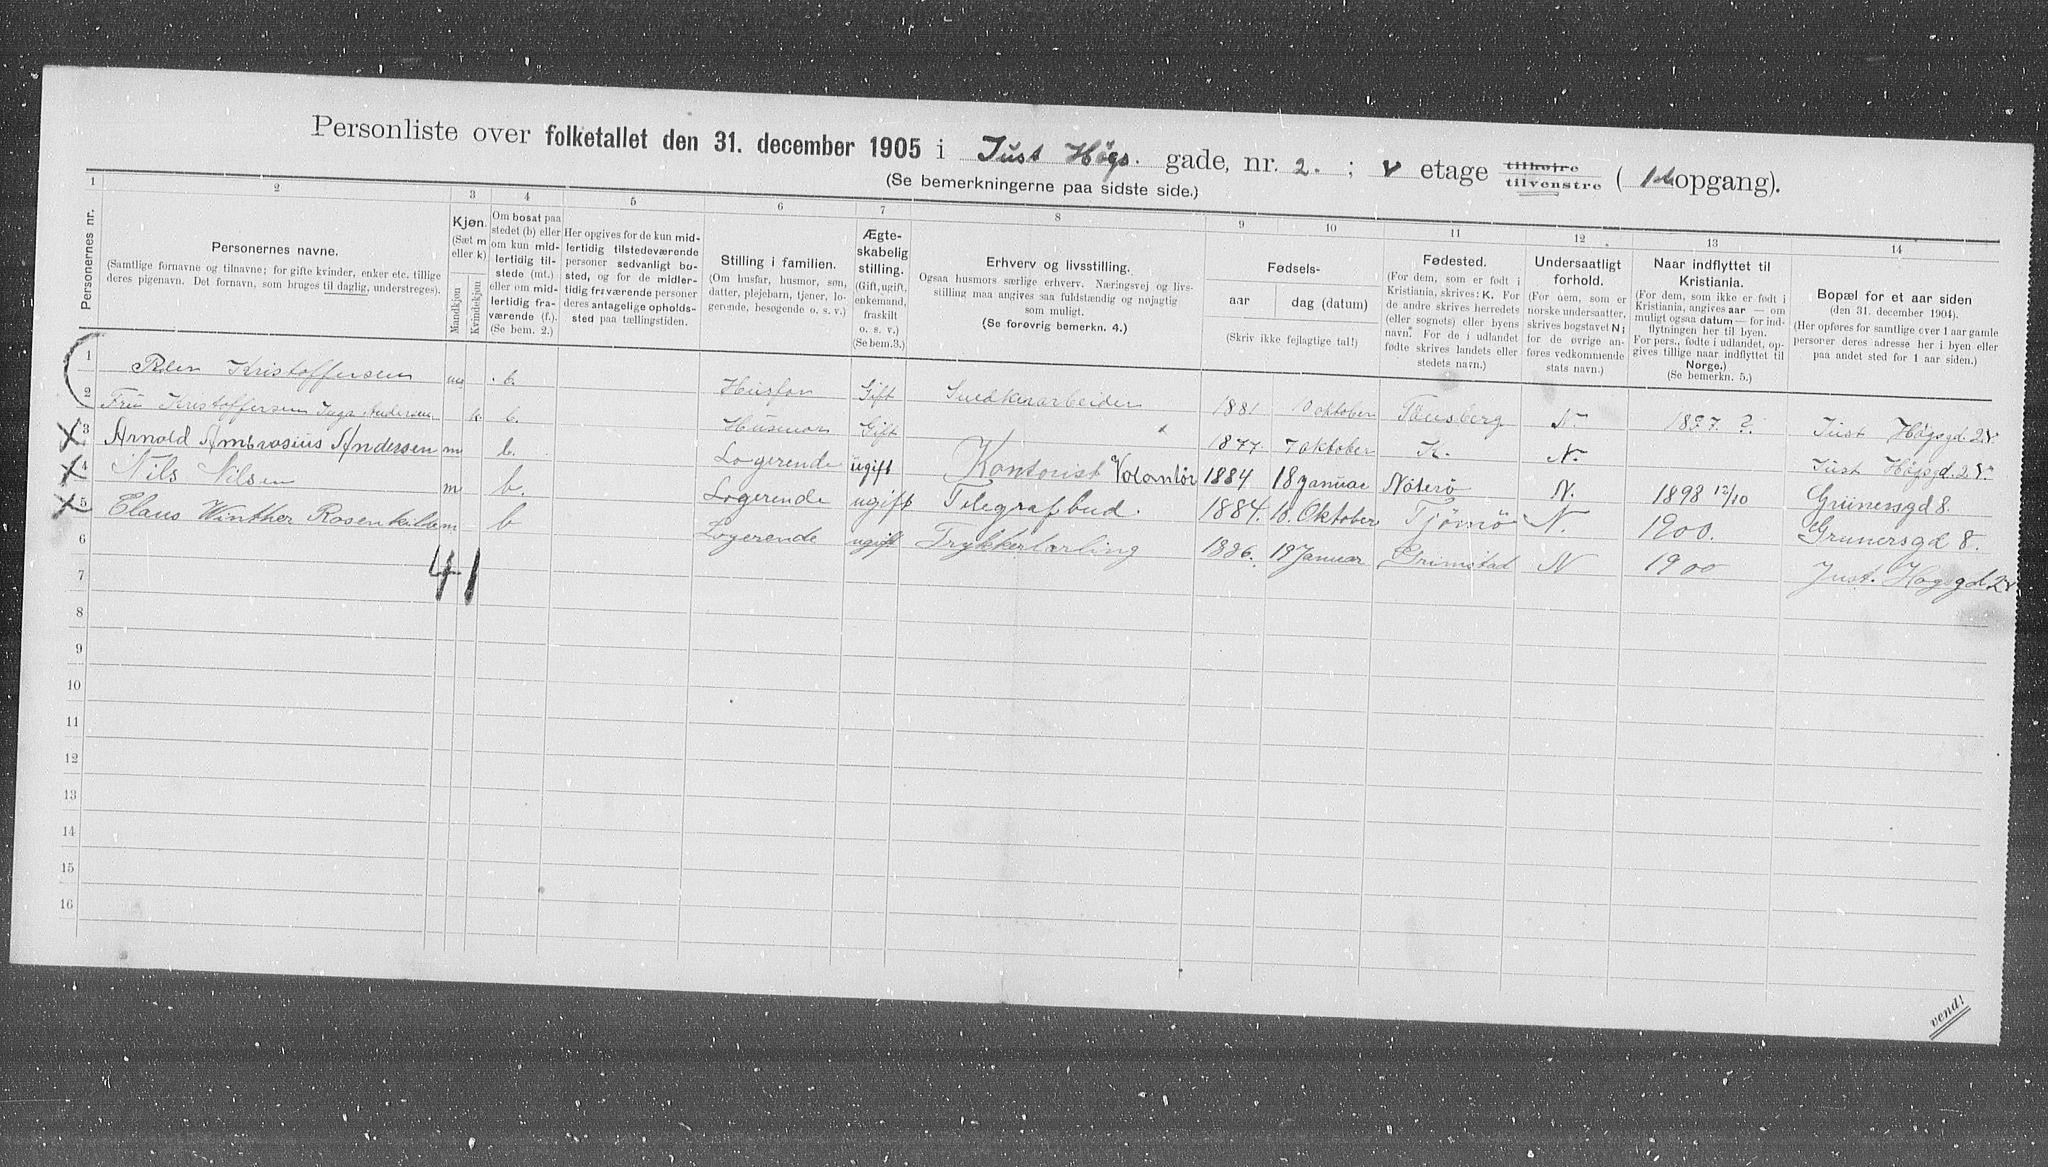 Personliste over folketallet den 31. december 1905 i Just Høgs. gade, nr. 2. ; v etage tilhøjre tilvenstre ( 1 opgang).
(Se bemerkningerne paa sidste side.)
1 2 3 4 5 6 7 8 9 10 11 12 13 14
Personernes nr.
Personernes navne.
(Samtlige fornavne og tilnavne; for gifte kvinder, enker etc. tillige
deres pigenavn. Det fornavn, som bruges til daglig, understreges).
Kjøn.
(Sæt m
eller k)
Mandkjøn
Kvindekjøn
Om bosat paa
stedet (b) eller
om kun mid-
lertidig til-
stede (mt.)
eller om mid-
lertidig fra-
værende (f.).
(Se bem. 2.)
Her opgives for de kun mid-
lertidig tilstedeværende
personer sedvanligt bo-
sted, og for de midler-
tidig fraværende personer
deres antagelige opholds-
sted paa tællingstiden.
Stilling i familien.
(Om husfar, husmor, søn,
datter, plejebarn, tjener, lo-
gerende, besøgende o. s. v.)
Ægte-
skabelig
stilling.
(Gift, ugift,
enkemand,
fraskilt
o. s. v.)
(Se bem.3.)
Erhverv og livsstilling.
Ogsaa husmors særlige erhverv. Næringsvej og livs-
stilling maa angives saa fuldstændig og nøjagtig
som muligt.
(Se forøvrig bemerkn. 4.)
Fødsels-
aar
dag (datum)
(Skriv ikke fejlagtige tal!)
Fødested.
(For dem, som er født i
Kristiania, skrives: K. For
de andre skrives herredets
(eller sognets) eller byens
navn. For de i udlandet
fødte skrives landets eller
stedets navn.)
Undersaatligt
forhold.
(For dem, som er
norske undersaatter,
skrives bogstavet N;
for de øvrige an-
føres vedkommende
stats navn.)
Naar indflyttet til
Kristiania.
(For dem, som ikke er født i
Kristiania, angives aar — om
muligt ogsaa datum — for ind-
flytningen her til byen.
For pers., fødte i udlandet, op-
gives tillige naar indflyttet til
Norge.)
(Se bemerkn. 5.)
Bopæl for et aar siden
(den 31. december 1904).
(Her opføres for samtlige over 1 aar gamle
personer deres adresse her i byen eller
paa andet sted for 1 aar siden.)
1 Kristoffersen m b. Husfar Gift 1881 10 oktober Tønsberg N. 1897 ? Just Høgsgd. 2 v
2 Fru Kristoffersen Inga Andersen k b. Husmor Gift 1877. 7 oktober K. N. Just Høgsgd. 2 v
3 Arnold Ambrosius Andersen m b. Logerende ugift Kontorist Volontør 1884 18 januar Nøterø N. 1898 12/10 Grünersgd 8.
4 Nils Nilsen m b. Logerende ugift Telegrafbud. 1884. 10. Oktober Tjømø N. 1900. Grunersgd 8.
5 Claus Winther Rosenkilde m b Logerende ugift Trykkerlærling 1886. 19 Januar Grimstad N 1900 Just. Høgsgd. 2 v.
6
4 1
7
8
9
10
11
12
13
14
15
16
vend!